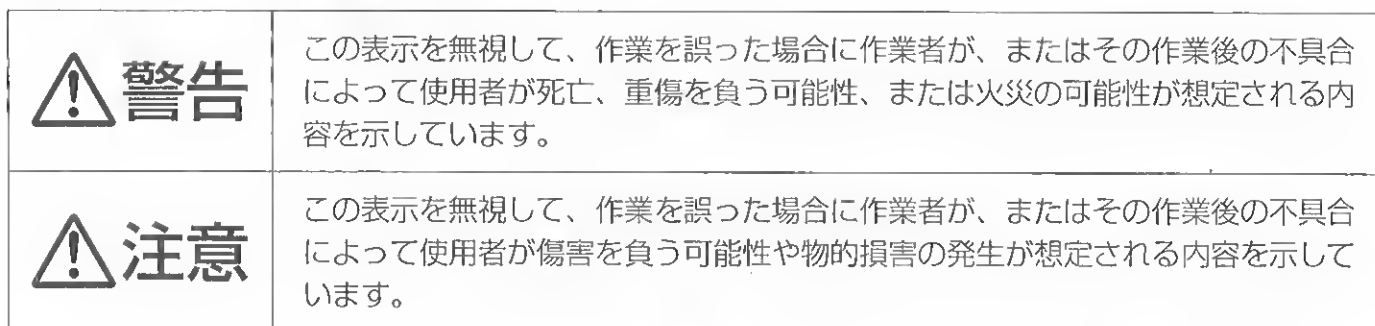 ⚠警告
この表示を無視して、作業を誤った場合に作業者が、またはその作業後の不具合
によって使用者が死亡、重傷を負う可能性、または火災の可能性が想定される内
容を示しています。
⚠注意
この表示を無視して、作業を誤った場合に作業者が、またはその作業後の不具合
によって使用者が傷害を負う可能性や物的損害の発生が想定される内容を示して
います。